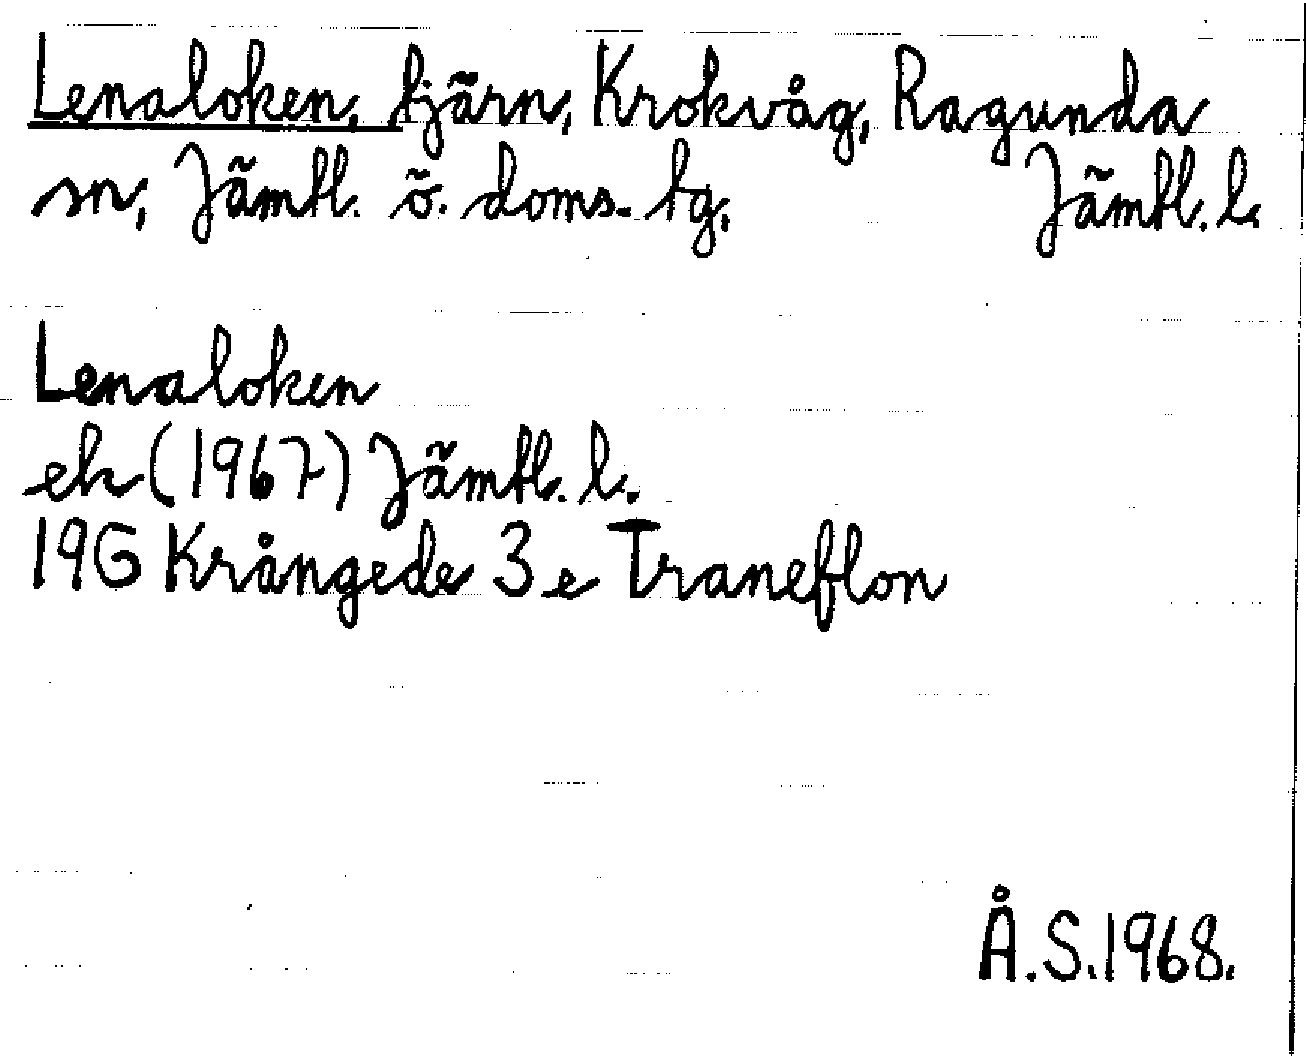 Lenaloken, tjärn, Krokvåg, Ragunda
sn, Jämtl. ö. doms. tg. Jämtl. l.
Lenaloken
ek (1967) Jämtl. l.
19G Krångede 3e Traneflon
Å.S. 1968.